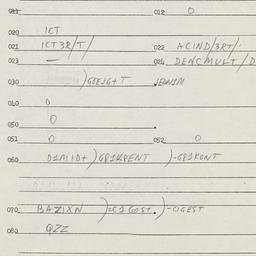 011 012 0
020 ICT
021 ICT3R/T/ 022 ACIND/3RT/.
023 — 024 DENCMULT/D
030 )GOEJG+T JEWNIM
040 0
050 0
051 0 052 0
060 D1MID+)GR1KRENT )-GR1KONT
070 BAZIXN )=C1GOST. )-CIGEST
080 QZZ